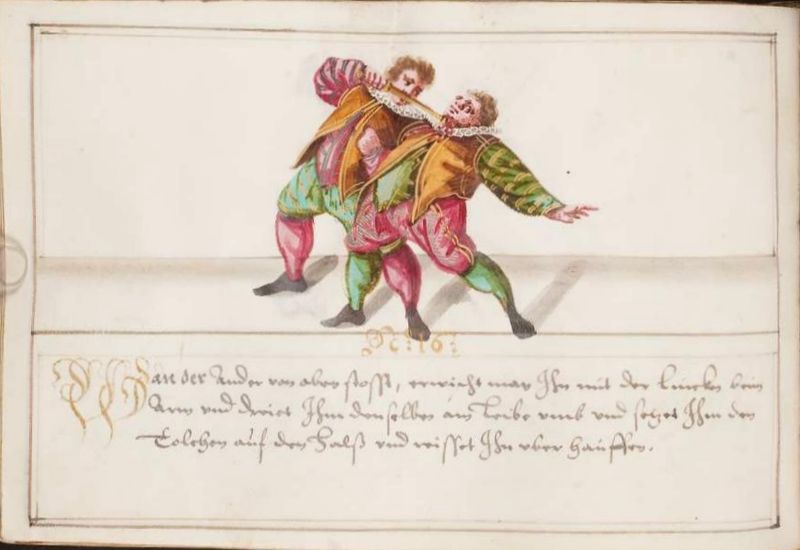 N: 16:
Wan der Ander von oben stosst, erwischt man Ihn mit der lincken beim
Arm und dreiet Ihm denselben am leibe umb und setzet Ihm den
Tolchen auf den halß und reisset Ihn uber hauffen.